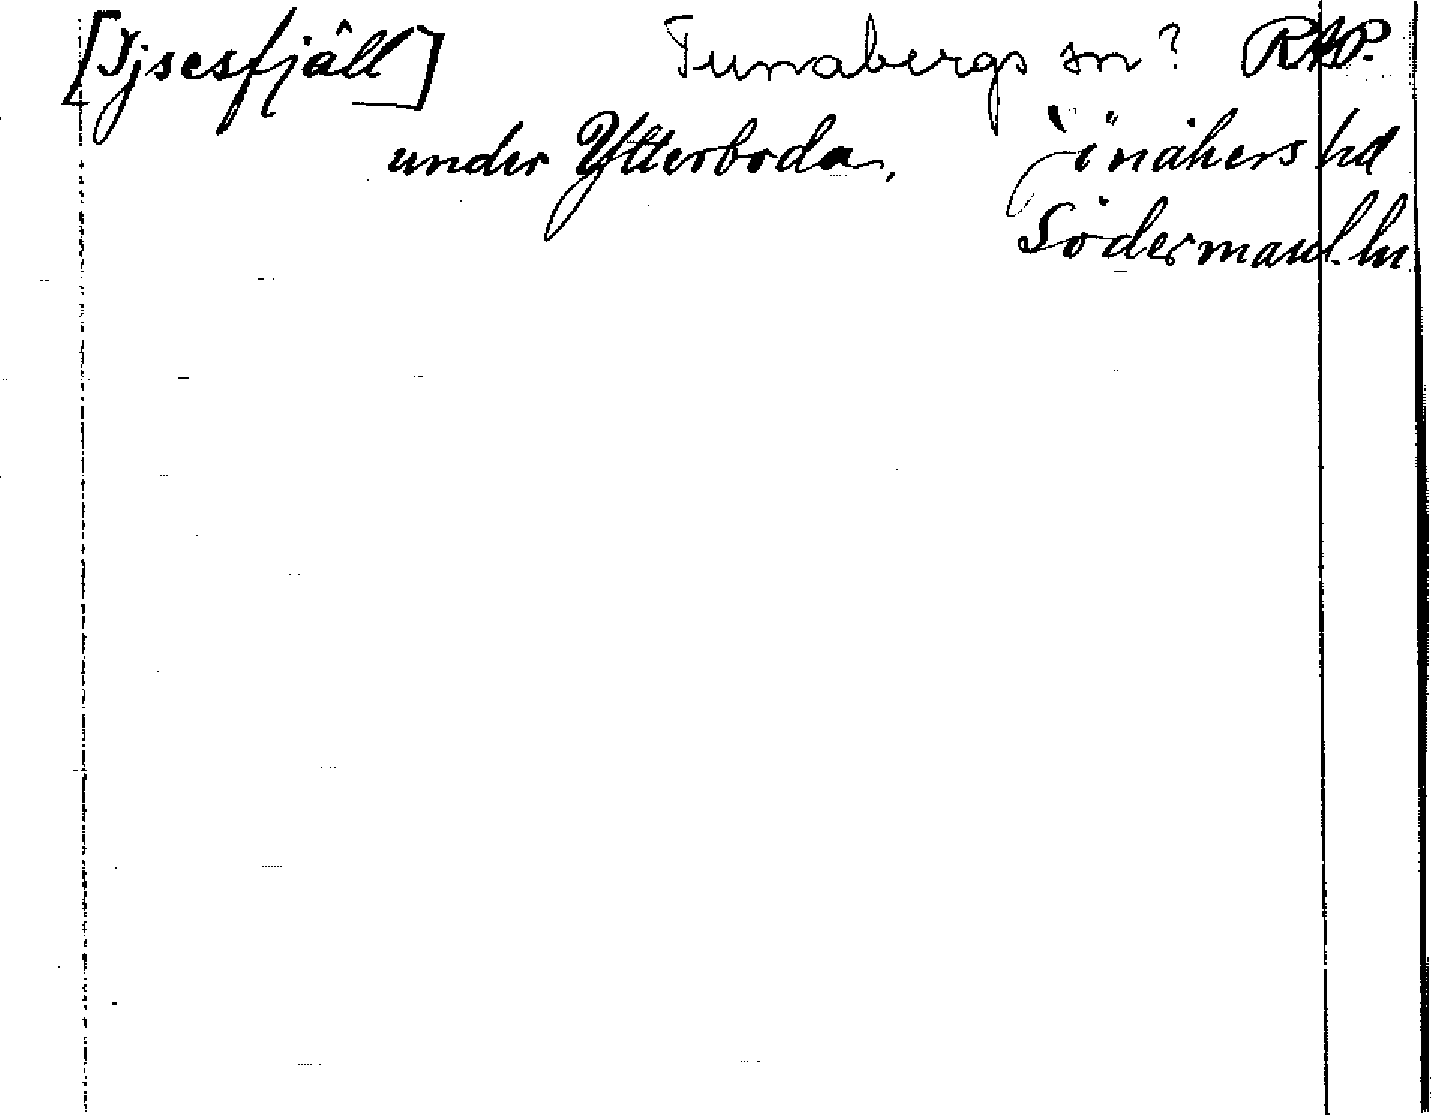 [Ijsesfjäll] Tunabergs sn? RAP.
under Ytterboda, Jönåkers hd
Södermanl. ln